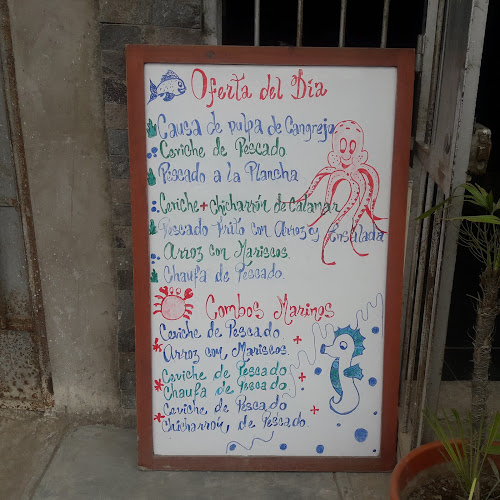 Oferta del Día
Causa de pulpa de Cangrejo
Ceviche de Pescado
Pescado a la Plancha
Ceviche + Chicharrón de Calamar
Pescado Frito con Arroz y Ensalada
Arroz con Mariscos.
Chaufa de Pescado.
Combos Marinos
Ceviche de Pescado
Arroz con Mariscos.
Ceviche de Pescado
Chaufa de Pescado
Ceviche de Pescado
Chicharrón, de Pescado.